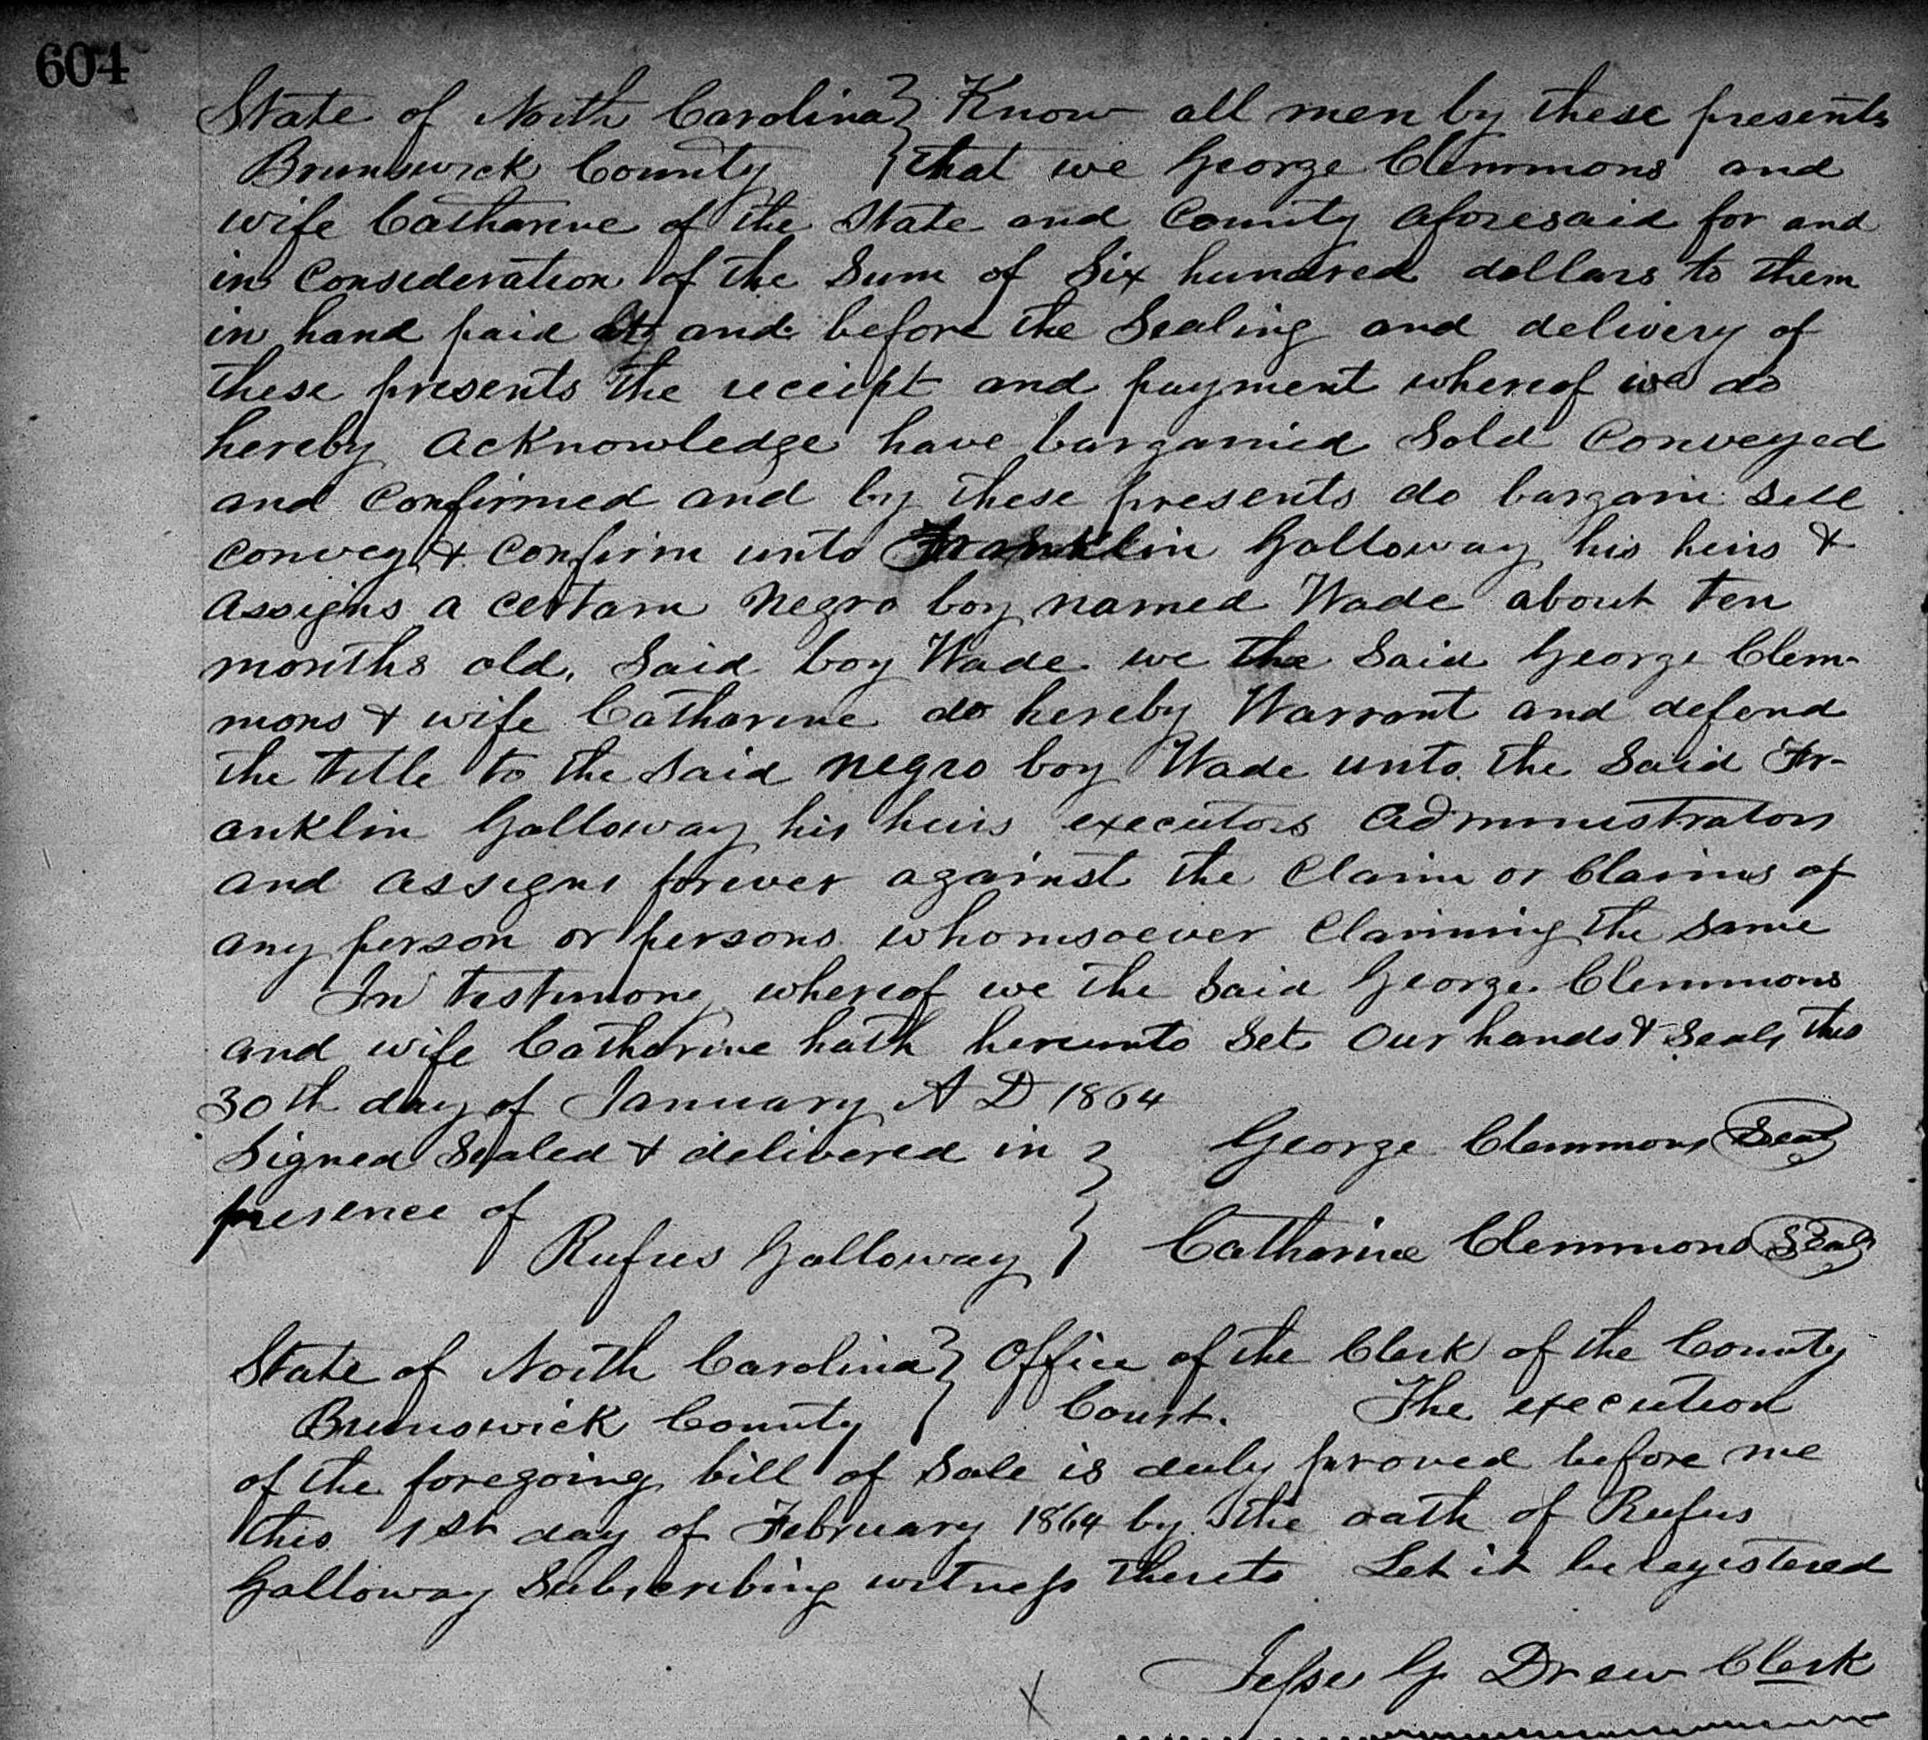 604
State of North Carolina } Know all men by these presents
Brunswick County } that we George Clemmons and
wife Catharine of the State and County aforesaid for and
in Consideration of the Sum of Six hundred dollars to them
in hand paid at and before the Sealing and delivery of
these presents the receipt and payment whereof we do
hereby Acknowledge have bargained Sold Conveyed
and Confirmed and by these presents do bargain Sell
Convey & Confirm unto Franklin Galloway his heirs &
Assigns a certain Negro boy named Wade about Ten
months old. Said boy Wade we the Said George Clem-
mons & wife Catharine do hereby Warrant and defend
the title to the Said negro boy Wade unto the Said Fr-
anklin Galloway his heirs executors Administrators
and assigns forever against the Claim or Claims of
any person or persons whomsoever Claiming the Same
In testimony whereof we the Said George Clemmons
and wife Catharine hath hereunto Set Our hands & Seals this
30th day of January A D 1864
Signed Sealed & delivered in } George Clemmons Seal
presence of
Rufus Galloway } Catharine Clemmons Seal
State of North Carolina } Office of the Clerk of the County
Brunswick County } Court. The execution
of the foregoing bill of Sale is duly proved before me
this 1st day of February 1864 by the oath of Rufus
Galloway Subscribing witness thereto Let it be registered
Jesse G Drew Clerk
X